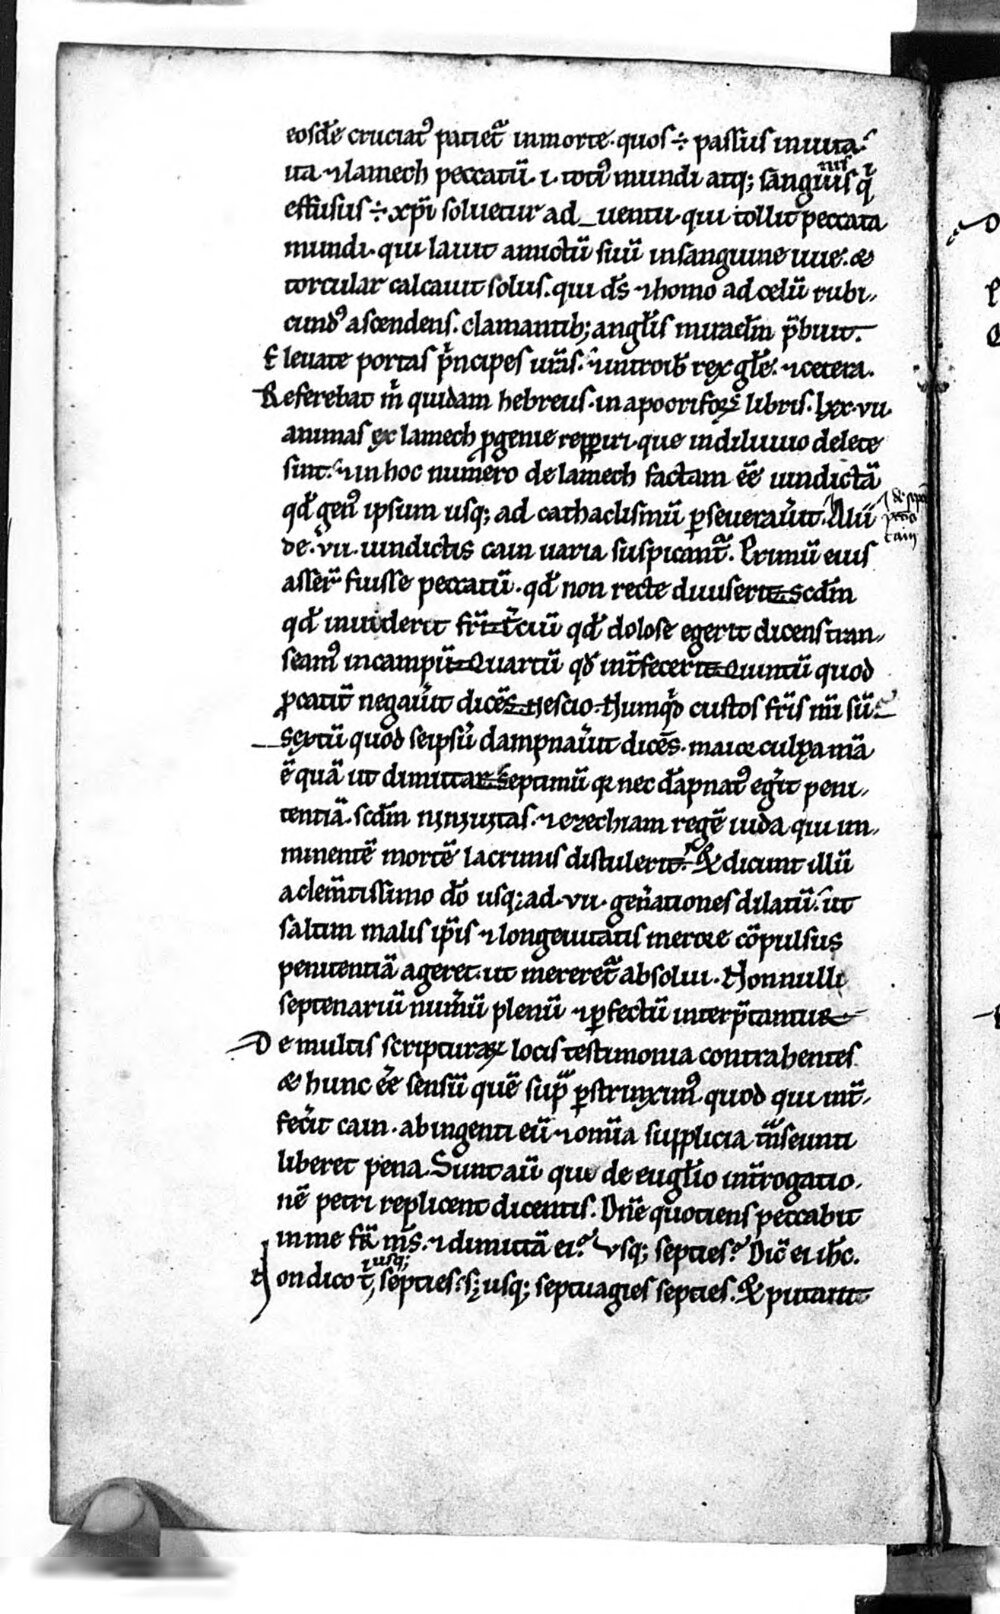 eosdē cruciat᷒ patiet᷑ in morte. quos ÷ passus in uita.
ita ⁊ lamech peccatū .i. toti᷒ mundi atq; sanguinis q̇
effusus ÷ xp̄i soluetur ad_uentu. qui tollit peccata
mundi. qui lauit amictū suū in sanguine uue. &
torcular calcauit solus. qui d̄s ⁊ homo ad celū rubi-
cund᷒ ascendens. clamantib; angl̄is miraclm p̄buit.
Eleuate portas p̄ncipes ur̄as. ⁊ introib̄ rex gl̄e. ⁊ cetera.
Referebat m̄ quidam hebreus. in apocrifoꝝ libris. lxx.vii.
animas ex lamech ꝓgenie repperiri. que in diluuio delete
sint. ⁊ in hoc numero de lamech factam ēē uindictā
qd̄ gen᷒ ipsum usq; ad cathaclismū ꝑseuerauit. Alii
de .vii. uindictis cain uaria suspicant᷑. Primū eius
asser̄ fuisse peccatū. qd̄ non recte diuiserit. Scdm̄
qd̄ inuiderit fr̄i. t̄ciū qd̄ dolose egerit dicens tran-
seam᷒ in campū. Quartū qd̄ int̄fecerit. Quintū quod
ꝓcatit̄ negauit dicēs. Nescio. Numq̇d custos fr̄is m̄i sū.
Sextū quod seipsū dampnauit dicēs. maior culpa mā
ē quā ut dimittar. Septimū qr nec dāpnat᷒ eḡit peni-
tentiā. scdm̄ niniuitas. ⁊ ezechiam regē iuda qui im-
minentē mortē lacrimis distulerit. Et dicunt illū
a clem̄tissimo dō usq; ad .vii. gen̄ationes dilatū. ut
saltim malis ip̄is ⁊ longeuitatis merore cōpulsus
penitentiā ageret. ut mereret᷑ absolui. Nonnulli
septenariū num̄ū plenū ⁊ ꝑfectū interp̄tantur
De multis scripturaꝝ locis testimonia contrahentes
& hunc ēē sensū quē sup̄ ꝑstrinxim᷒. quod qui int̄-
fec̄it cain. ab ingenti eū ⁊ om̄ia supplicia t̄nseunti
liberet pena. Sunt aū que de euḡlio int̄rogatio-
nē petri replicent dicentis. Dn̄e quotiens peccabit
in me fr̄ m̄s. ⁊ dimittā ei? Usq; septies? Dic̄ ei ih̄c.
Non dico t̄ usq; septies. s; usq; septuagies septies. Et putant